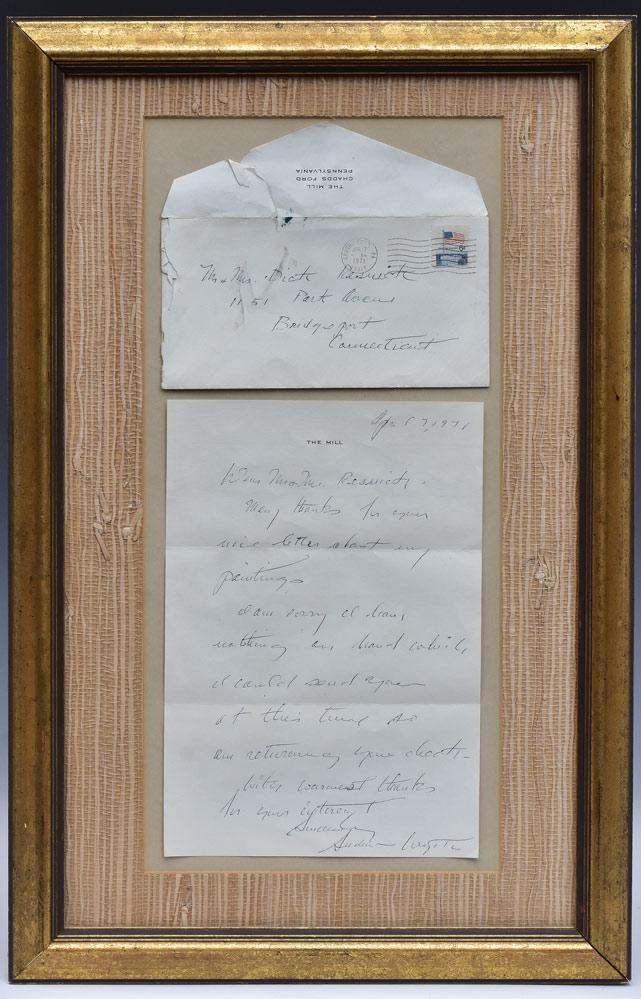 THE MILL
CHADDS FORD
PENNSYLVANIA
1971
6¢
Mr & Mrs. Dick Resnick
1151 Park Avenue
Bridgeport
Connecticut
April 7, 1971
THE MILL
Dear Mr & Mrs. Resnick,
Many thanks for your
nice letter about my
paintings
I am sorry I have
nothing on hand which
I could send you
at this time so
am returning your check—
With warmest thanks
for your interest
Sincerely
Andrew Wyeth